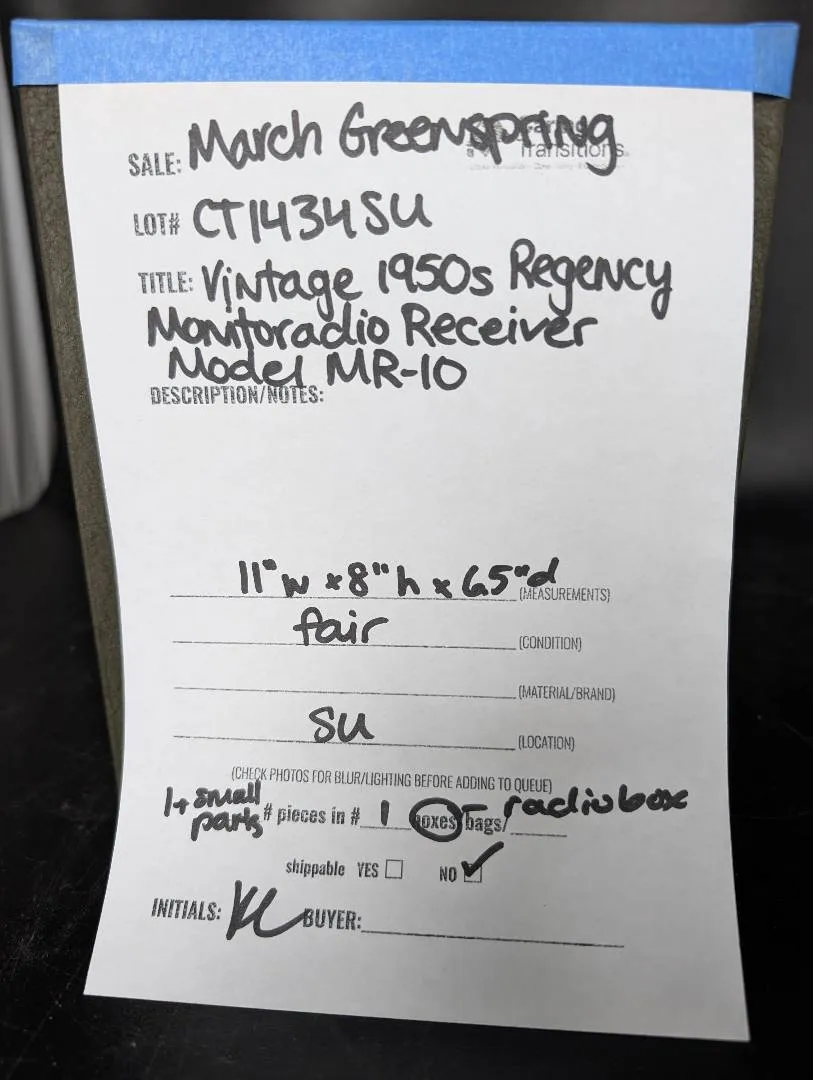 SALE: March Greenspring
Transitions
LOT# CT1434SU
TITLE: Vintage 1950s Regency
Monitoradio Receiver
Model MR-10
DESCRIPTION/NOTES:
11" w x 8" h x 6.5" d (MEASUREMENTS)
fair (CONDITION)
(MATERIAL/BRAND)
SU (LOCATION)
(CHECK PHOTOS FOR BLUR/LIGHTING BEFORE ADDING TO QUEUE)
1+ small parts # pieces in # 1 boxes/bags/ radio box
shippable YES NO
INITIALS: KC BUYER: